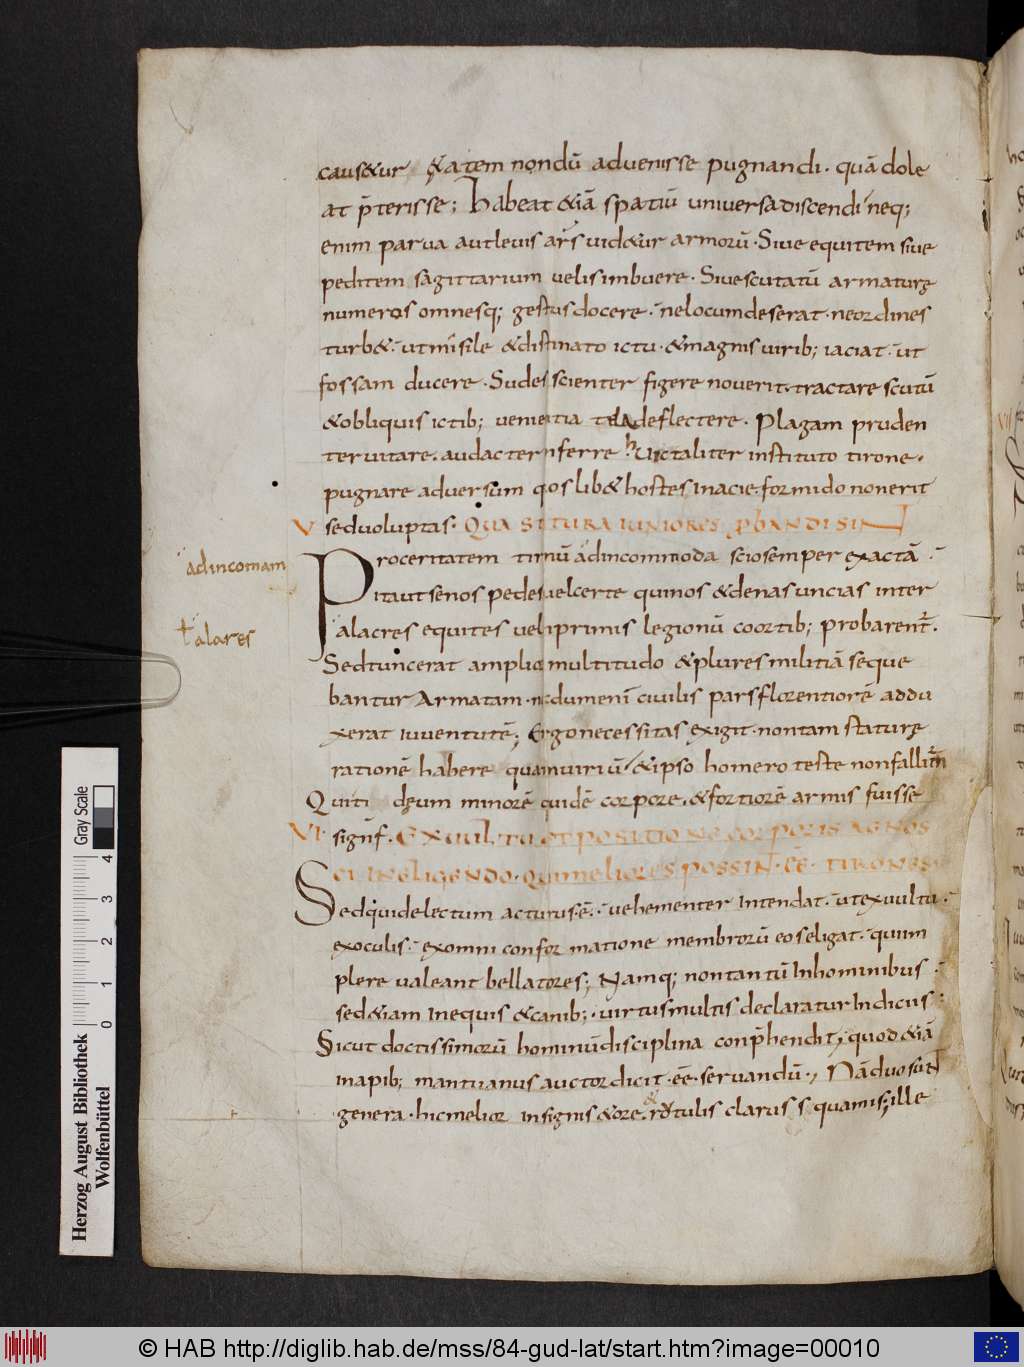 caus&ur ętatem nondū advenisse pugnandi · quā dole
at p̄terisse; Habeat &iā spatiū universa discendi neq;
enim parva aut levis ars vid&ur armorū · Sive equitem sive
peditem sagittarium velis imbuere · Sive scutatū armaturę
numeros omnesq; gestus docere · ne locum deserat · ne ordines
turb& · ut missile & distinato ictu · & magnis virib; iaciat · ut
fossam ducere · Sudes scienter figere noverit · tractare scutū
& obliquis ictib; venientia tela deflectere · Plagam pruden
ter vitare · audacter inferre · Huic taliter instituto tirone ·
pugnare adversum qos lib& hostes in acie · formido non erit
V sed voluptas · QUA STATURA IUNIORES PBANDI SIN
Proceritatem tironū ad incommoda scio semper exactā ·
ad incomam
Ita ut senos pedes vel certe quinos & denas uncias inter
alacres equites vel in primis legionū coortib; probarent̄.
t alares
Sed tunc erat amplior multitudo & plures militiā seque
bantur Armatam · necdum enī civilis pars florentiorē addu
xerat iuventutē; Ergo necessitas exigit · non tam staturę
rationē habere quam viriū · & ipso homero teste non fallitur
Qui ti deum minorē quidē corpore · & fortiorē armis fuisse
VI signf · EX VULTU ET POSITIONE CORPORIS AGNOS
CI IN ELIGENDO · QUI MELIORES POSSIN · EE · TIRONES
Sed qui delectum acturus · ē · vehementer Intendat · ut ex vultu ·
ex oculis · ex omni conformatione membrorū eos eligat · qui im
plere valeant bellatores; Namq; non tantū In hominibus ·
sed &iam In equis & canib; · virtus multis declaratur Indiciis ·
Sicut doctissimorū hominū disciplina conp̄hendit, quod &iā
in apib; mantuanus auctor dicit · ēē · servandū · Nā duo sunt
genera · hic melior insignis & ore & rutulis clarus s quamis; ille
Herzog August Bibliothek
Wolfenbüttel
Gray Scale
0 1 2 3 4
© HAB http://diglib.hab.de/mss/84-gud-lat/start.htm?image=00010